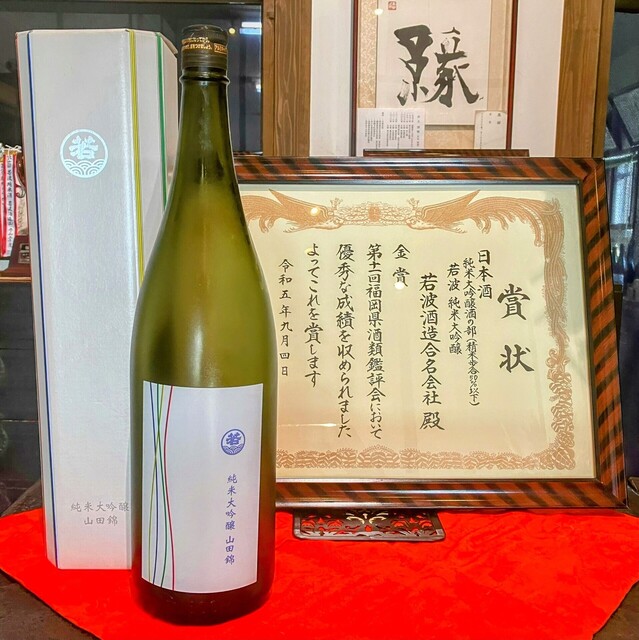 若
純米大吟醸
山田錦
若
純米大吟醸 山田錦
賞状
日本酒
純米大吟醸酒の部(精米歩合50%以下)
若波 純米大吟醸
若波酒造合名会社 殿
金賞
第十一回福岡県酒類鑑評会において
優秀な成績を収められました
よってこれを賞します
令和五年九月四日